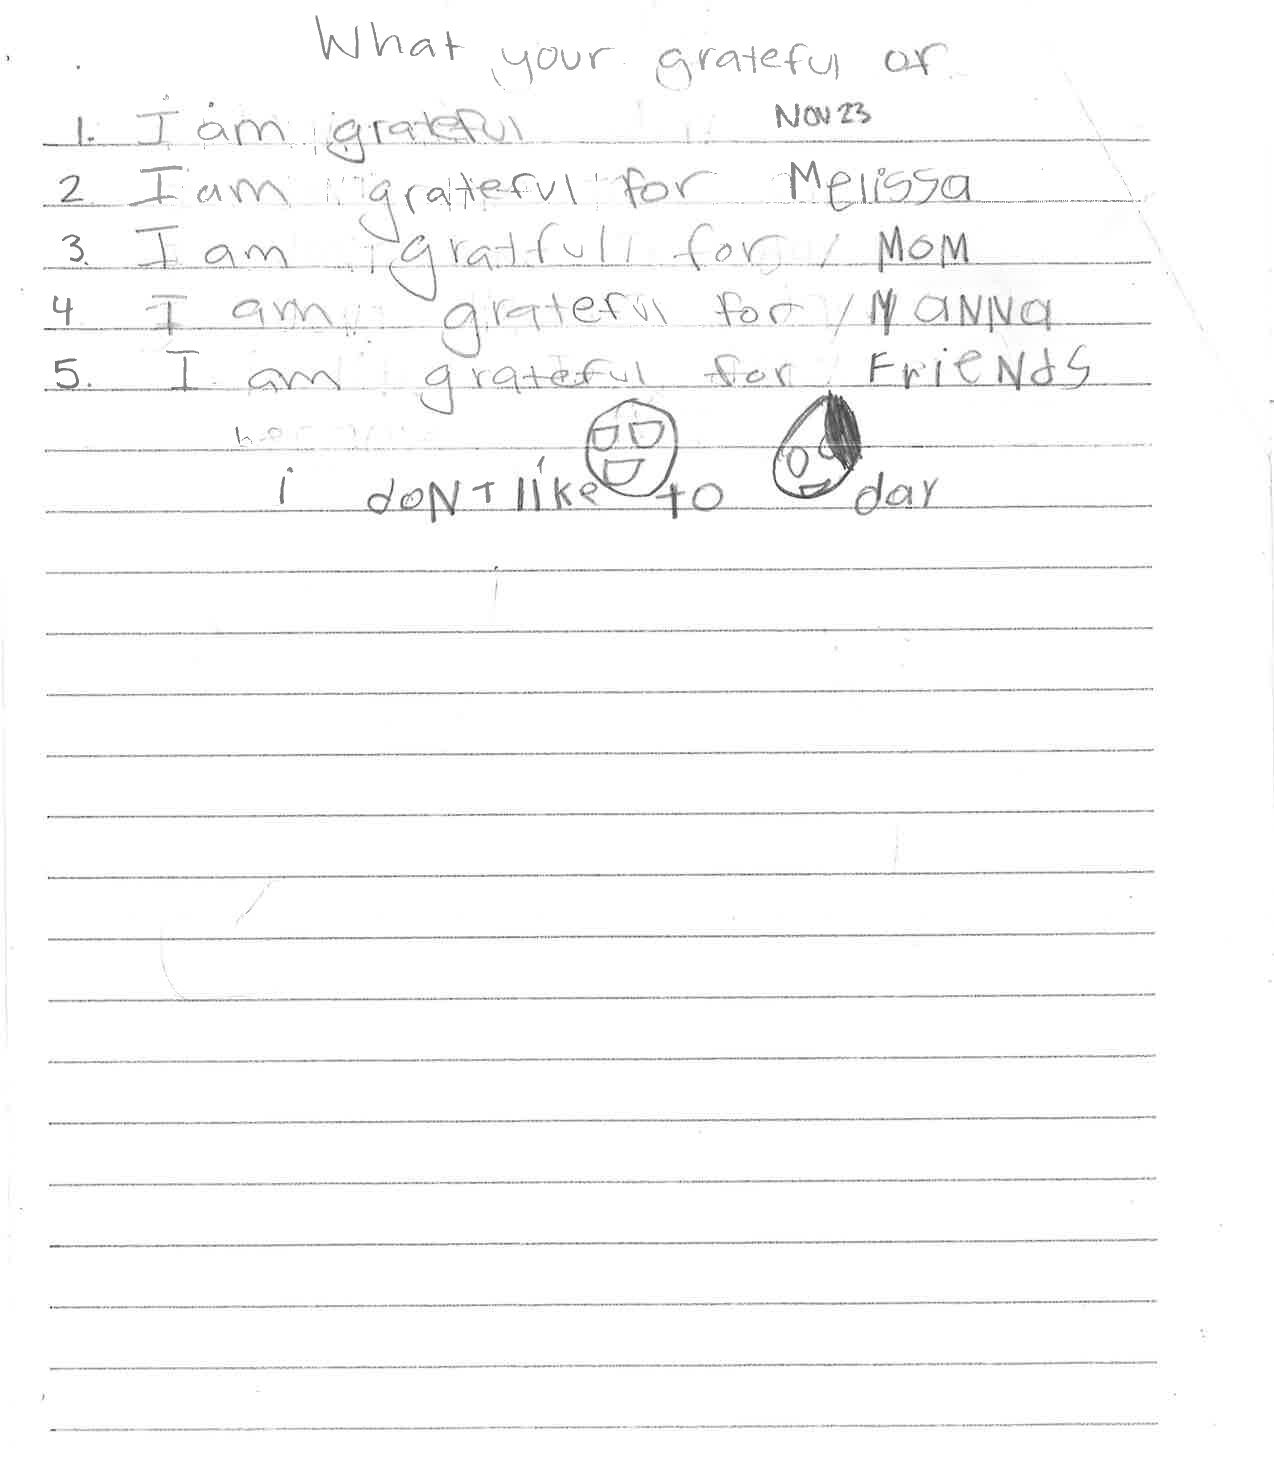 What your grateful of
1. I am grateful Nov 23
2 I am grateful for Melissa
3. I am gratfull for / MOM
4 I am grateful for / NANNa
5. I am grateful for FrieNds
i doNT like to day